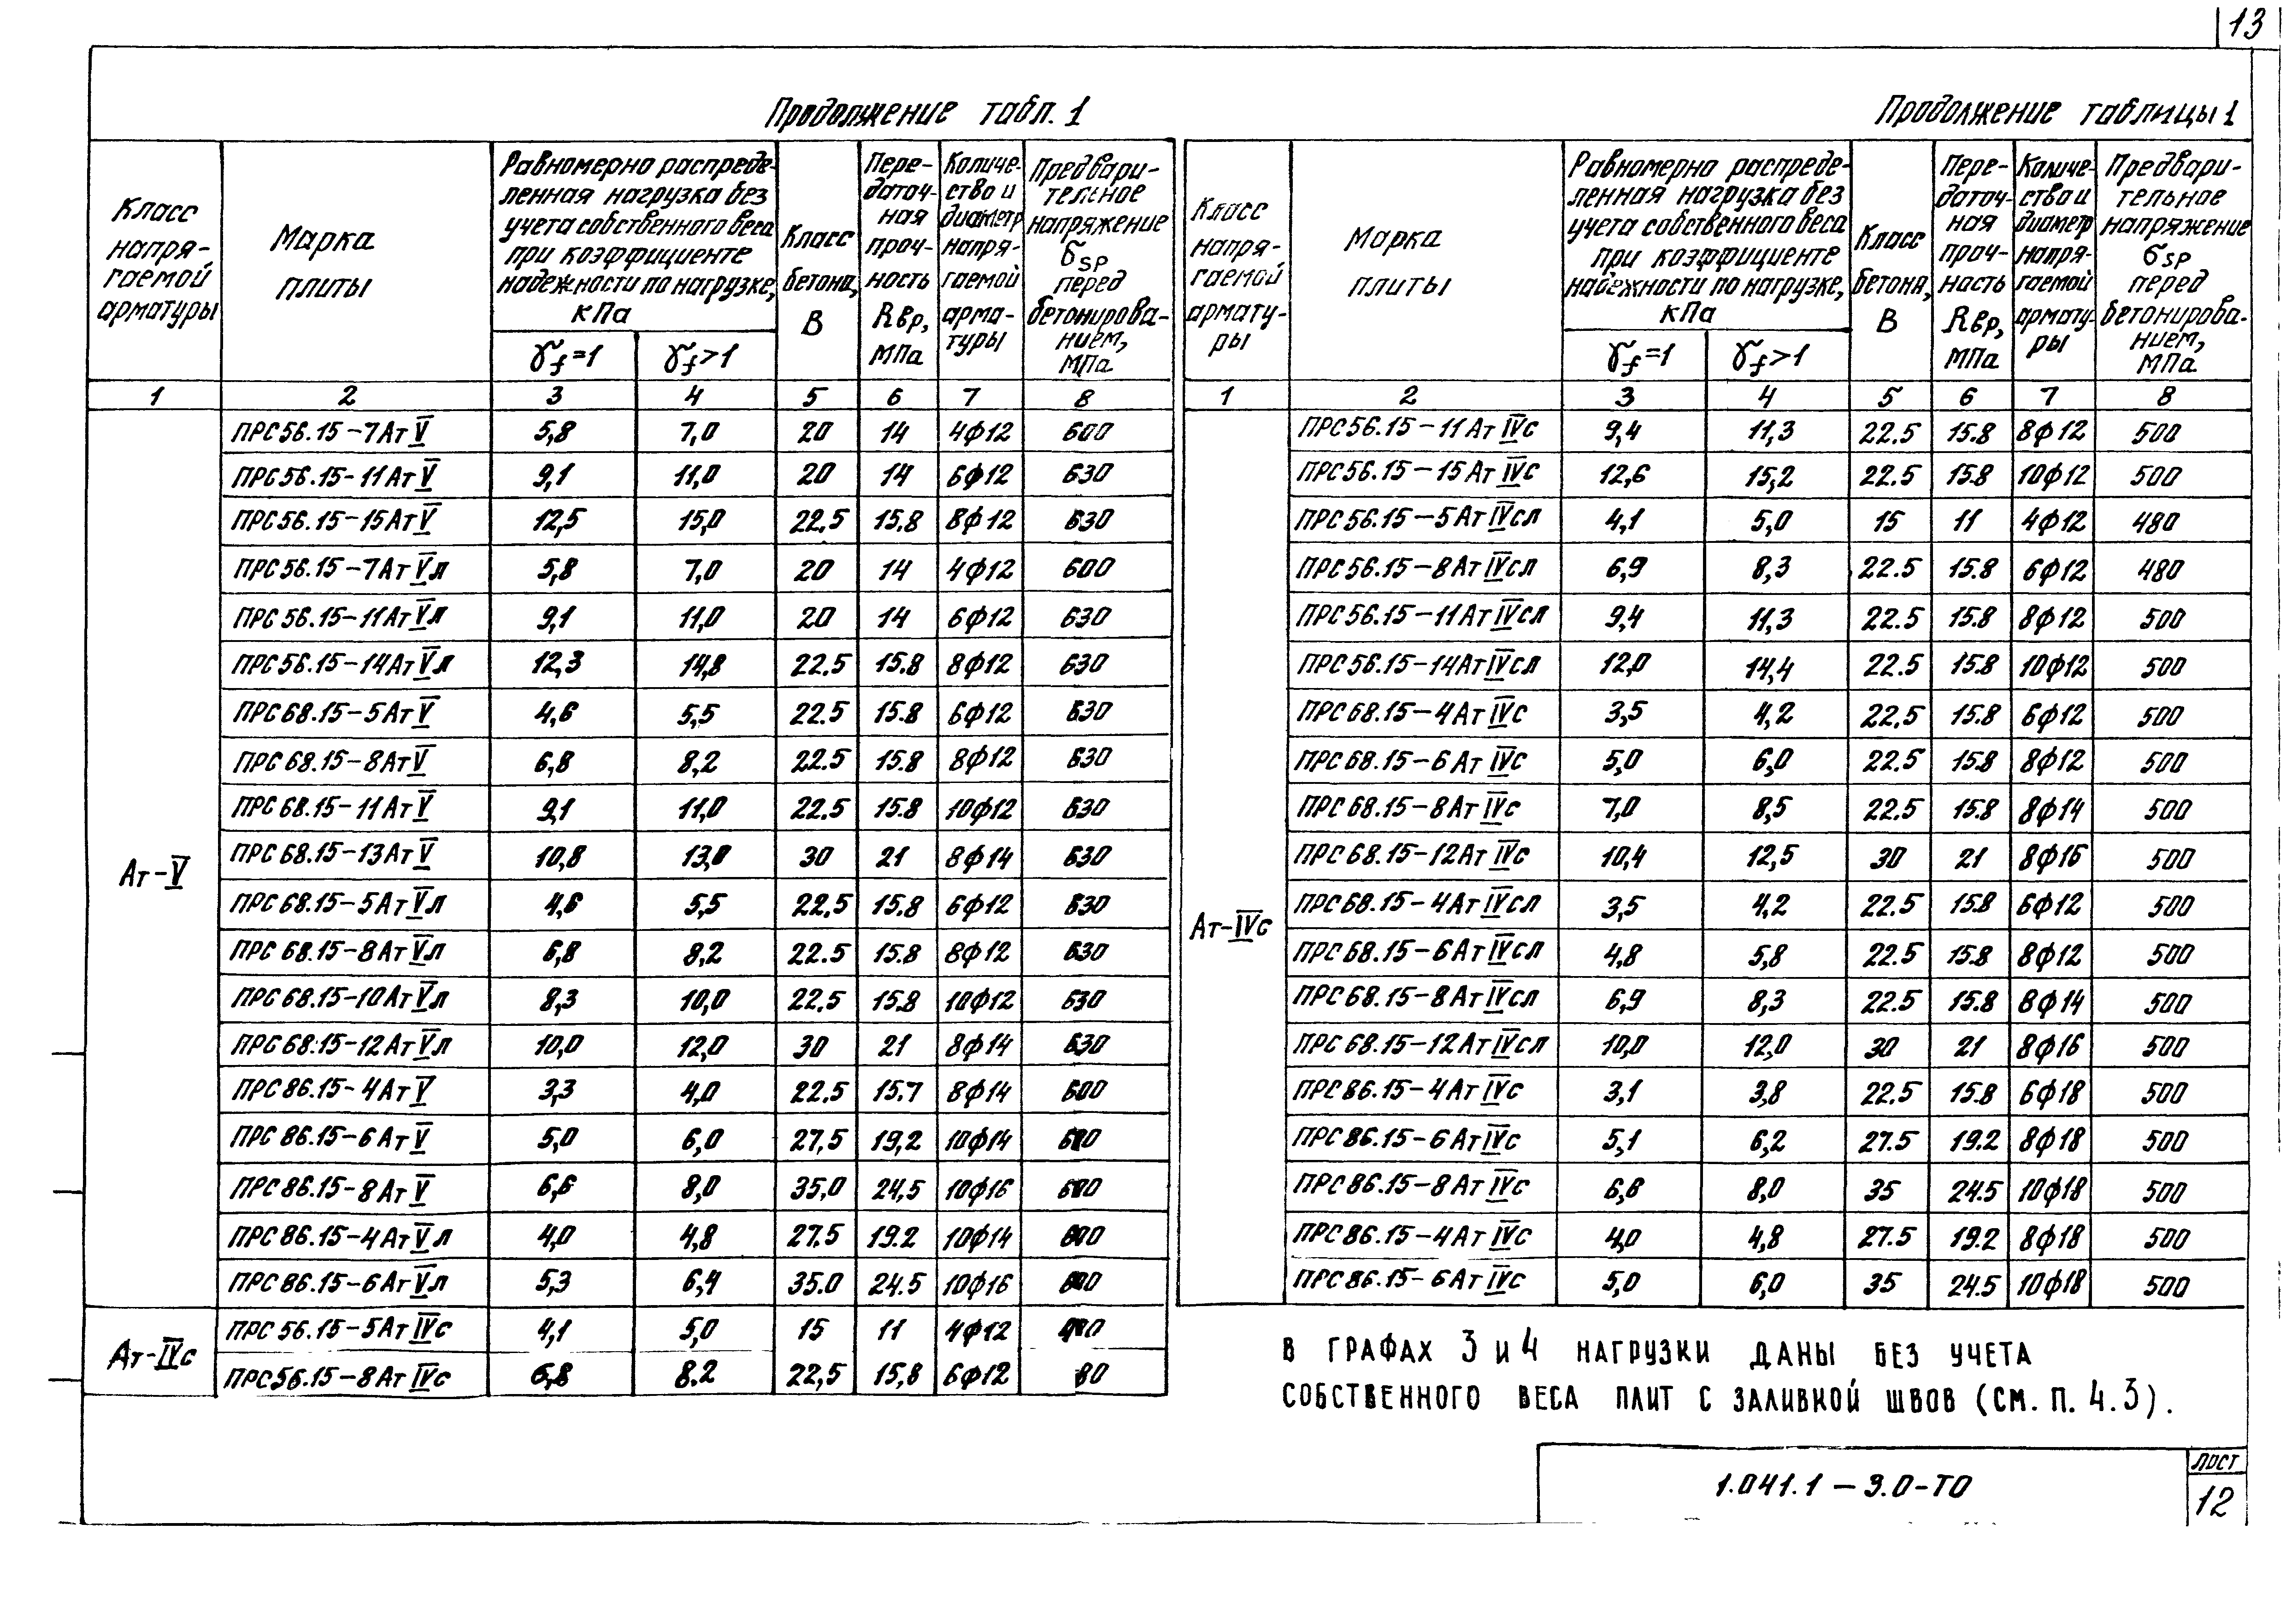 13
Продолжение табл. 1
Класс напря-гаемой арматуры | Марка плиты | Равномерно распреде-ленная нагрузка без учета собственного веса при коэффициенте надежности по нагрузке, кПа | Класс бетона, В | Пере-даточ-ная проч-ность Rвр, МПа | Количе-ство и диаметр напря-гаемой арма-туры | Предвари-тельное напряжение σsp перед бетонирова-нием, МПа
γf=1 | γf>1
1 | 2 | 3 | 4 | 5 | 6 | 7 | 8
ПРС56.15-7АтV | 5,8 | 7,0 | 20 | 14 | 4ф12 | 600
ПРС56.15-11АтV | 9,1 | 11,0 | 20 | 14 | 6ф12 | 630
ПРС56.15-15АтV | 12,5 | 15,0 | 22.5 | 15.8 | 8ф12 | 630
ПРС56.15-7АтVл | 5,8 | 7,0 | 20 | 14 | 4ф12 | 600
ПРС56.15-11АтVл | 9,1 | 11,0 | 20 | 14 | 6ф12 | 630
ПРС56.15-14АтVл | 12,3 | 14,8 | 22.5 | 15.8 | 8ф12 | 630
ПРС68.15-5АтV | 4,6 | 5,5 | 22.5 | 15.8 | 6ф12 | 630
ПРС68.15-8АтV | 6,8 | 8,2 | 22.5 | 15.8 | 8ф12 | 630
ПРС68.15-11АтV | 9,1 | 11,0 | 22.5 | 15.8 | 10ф12 | 630
Ат-V | ПРС68.15-13АтV | 10,8 | 13,0 | 30 | 21 | 8ф14 | 630
ПРС68.15-5АтVл | 4,6 | 5,5 | 22,5 | 15.8 | 6ф12 | 630
ПРС68.15-8АтVл | 6,8 | 8,2 | 22.5 | 15.8 | 8ф12 | 630
ПРС68.15-10АтVл | 8,3 | 10,0 | 22.5 | 15.8 | 10ф12 | 630
ПРС68.15-12АтVл | 10,0 | 12,0 | 30 | 21 | 8ф14 | 630
ПРС86.15-4АтV | 3,3 | 4,0 | 22.5 | 15.7 | 8ф14 | 600
ПРС86.15-6АтV | 5,0 | 6,0 | 27,5 | 19,2 | 10ф14
ПРС86.15-8АтV | 6,6 | 8,0 | 35,0 | 24,5 | 10ф16
ПРС86.15-4АтVл | 4,0 | 4,8 | 27.5 | 19.2 | 10ф14
ПРС86.15-6АтVл | 5,3 | 6,4 | 35.0 | 24.5 | 10ф16
Ат-IVс | ПРС56.15-5АтIVс | 4,1 | 5,0 | 15 | 11 | 4ф12
ПРС56.15-8АтIVс | 6,8 | 8.2 | 22,5 | 15,8 | 6ф12
Продолжение таблицы 1
Класс напря-гаемой армату-ры | Марка плиты | Равномерно распреде-ленная нагрузка без учета собственного веса при коэффициенте надежности по нагрузке, кПа | Класс бетона, В | Пере-даточ-ная проч-ность Rвр, МПа | Количе-ство и диаметр напря-гаемой армату-ры | Предвари-тельное напряжение σsp перед бетонирова-нием, МПа
γf=1 | γf>1
1 | 2 | 3 | 4 | 5 | 6 | 7 | 8
ПРС56.15-11АтIVс | 9,4 | 11,3 | 22.5 | 15.8 | 8ф12 | 500
ПРС56.15-15АтIVс | 12,6 | 15,2 | 22.5 | 15.8 | 10ф12 | 500
ПРС56.15-5АтIVсл | 4,1 | 5,0 | 15 | 11 | 4ф12 | 480
ПРС56.15-8АтIVсл | 6,9 | 8,3 | 22.5 | 15.8 | 6ф12 | 480
ПРС56.15-11АтIVсл | 9,4 | 11,3 | 22.5 | 15.8 | 8ф12 | 500
ПРС56.15-14АтIVсл | 12,0 | 14,4 | 22.5 | 15.8 | 10ф12 | 500
ПРС68.15-4АтIVс | 3,5 | 4,2 | 22,5 | 15.8 | 6ф12 | 500
ПРС68.15-6АтIVс | 5,0 | 6,0 | 22.5 | 15.8 | 8ф12 | 500
ПРС68.15-8АтIVс | 7,0 | 8,5 | 22.5 | 15.8 | 8ф14 | 500
ПРС68.15-12АтIVс | 10,4 | 12,5 | 30 | 21 | 8ф16 | 500
Ат-IVс | ПРС68.15-4АтIVсл | 3,5 | 4,2 | 22.5 | 15.8 | 6ф12 | 500
ПРС68.15-6АтIVсл | 4,8 | 5,8 | 22.5 | 15.8 | 8ф12 | 500
ПРС68.15-8АтIVсл | 6,9 | 8,3 | 22.5 | 15.8 | 8ф14 | 500
ПРС68.15-12АтIVсл | 10,0 | 12,0 | 30 | 21 | 8ф16 | 500
ПРС86.15-4АтIVс | 3,1 | 3,8 | 22.5 | 15.8 | 6ф18 | 500
ПРС86.15-6АтIVс | 5,1 | 6,2 | 27.5 | 19.2 | 8ф18 | 500
ПРС86.15-8АтIVс | 6,6 | 8,0 | 35 | 24.5 | 10ф18 | 500
ПРС86.15-4АтIVс | 4,0 | 4,8 | 27.5 | 19.2 | 8ф18 | 500
ПРС86.15-6АтIVс | 5,0 | 6,0 | 35 | 24.5 | 10ф18 | 500
В ГРАФАХ 3 И 4 НАГРУЗКИ ДАНЫ БЕЗ УЧЕТА
СОБСТВЕННОГО ВЕСА ПЛИТ С ЗАЛИВКОЙ ШВОВ (СМ. П. 4.3).
1.041.1-3.0-ТО
ЛИСТ
12